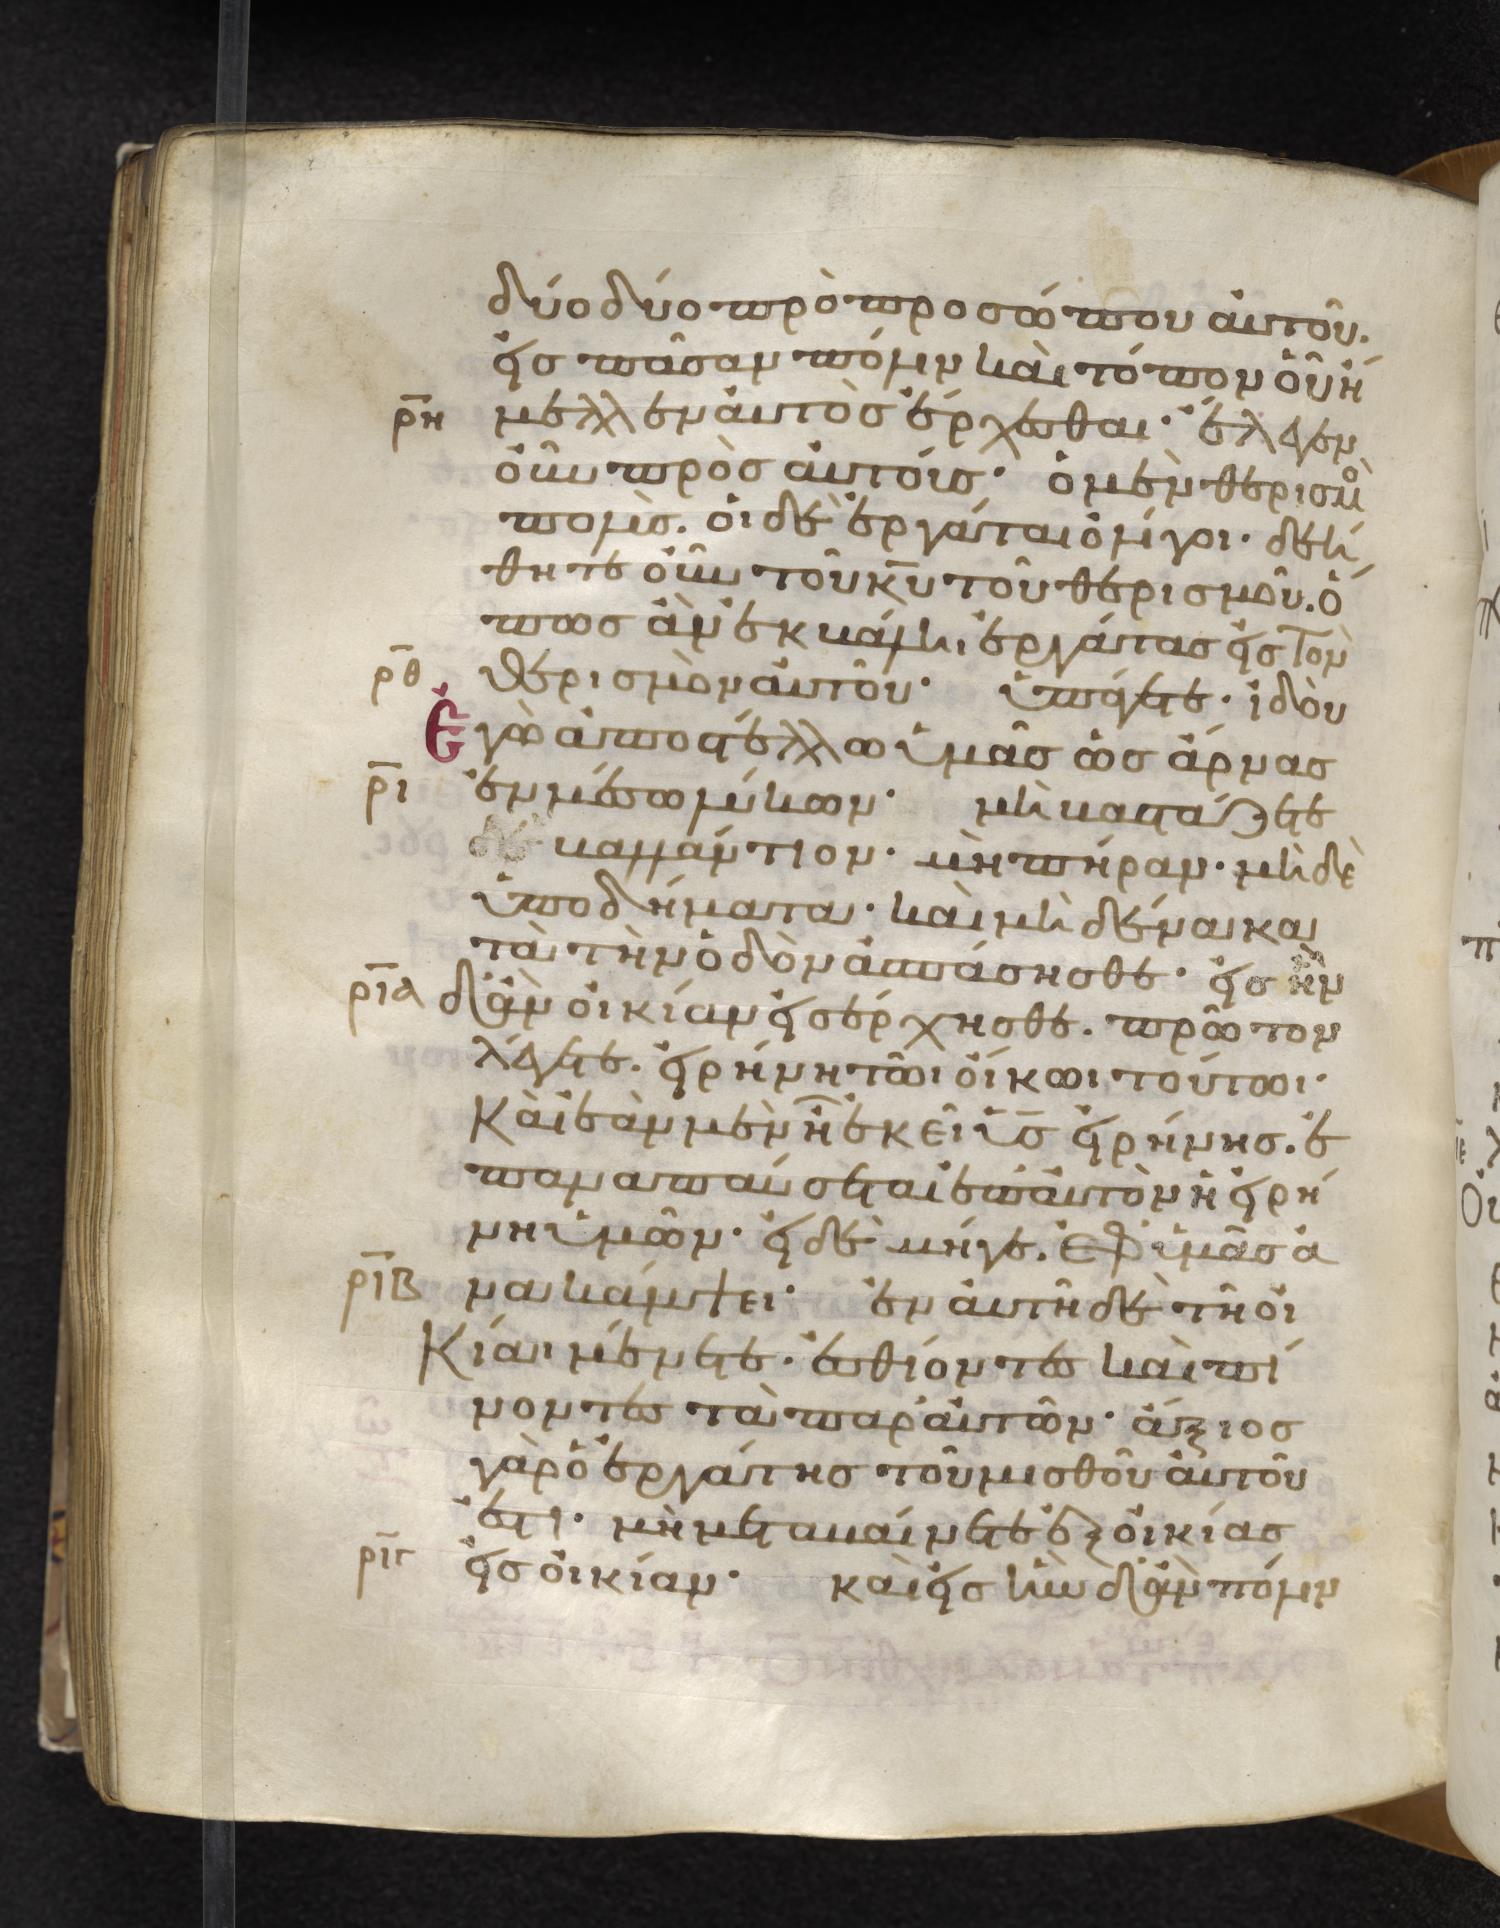 δύο δύο πρὸ προσώπου αὐτοῦ.
εἰς πᾶσαν πόλιν καὶ τόπον οὗ ἤ
ρη μελλεν αὐτὸς ἔρχεσθαι· ἔλεγεν
οὖν πρὸς αὐτοίς· ὁ μὲν θερισμὸ
πολὺς. οἱ δὲ ἐργάται ὀλίγοι· δεή
θητε οὖν τοῦ κυ τοῦ θερισμοῦ. ὅ
πως ἂν ἐκβάλη ἐργάτας εἰς τὸν
ρθ θερισμὸν αὐτοῦ· ὑπάγετε· ἰδοὺ
Ἐγὼ ἀποστέλλω ὑμᾶς ὡς ἄρνας
ρι ἐν μέσω λύκων· μὴ βαστάζετε
δὲ βαλλάντιον· μὴ πήραν· μὴ δὲ
ὑποδήματα· καὶ μὴ δένα κα
τὰ τὴν ὁδὸν ἀσπάσησθε· εἰς ἣν
ρια δ' ἂν οἰκίαν εἰσέρχησθε. πρῶτον
λέγετε. εἰρήνη τῶι οἴκωι τούτωι·
Καὶ ἐὰν μὲν ἦ ἐκεῖ υς εἰρήνης. ἐ
παναπαύσεται ἐπ' αὐτὸν ἡ εἰρή
νη ὑμῶν· εἰ δὲ μήγε. ἐφ' ὑμᾶς ἀ
ριβ νακάμψει· ἐν αὐτῆ δὲ τῆ οἰ
Κίαι μένετε· ἐσθίοντες καὶ πί
νοντες τὰ παρ' αὐτῶν· ἄξιος
γὰρ ὁ ἐργάτης τοῦ μισθοῦ αὐτοῦ
ἐστι· μὴ μεταβαίνετε ἐξ οἰκίας
ριγ εἰς οἰκίαν· καὶ εἰς ἣν δ' ἂν πόλιν